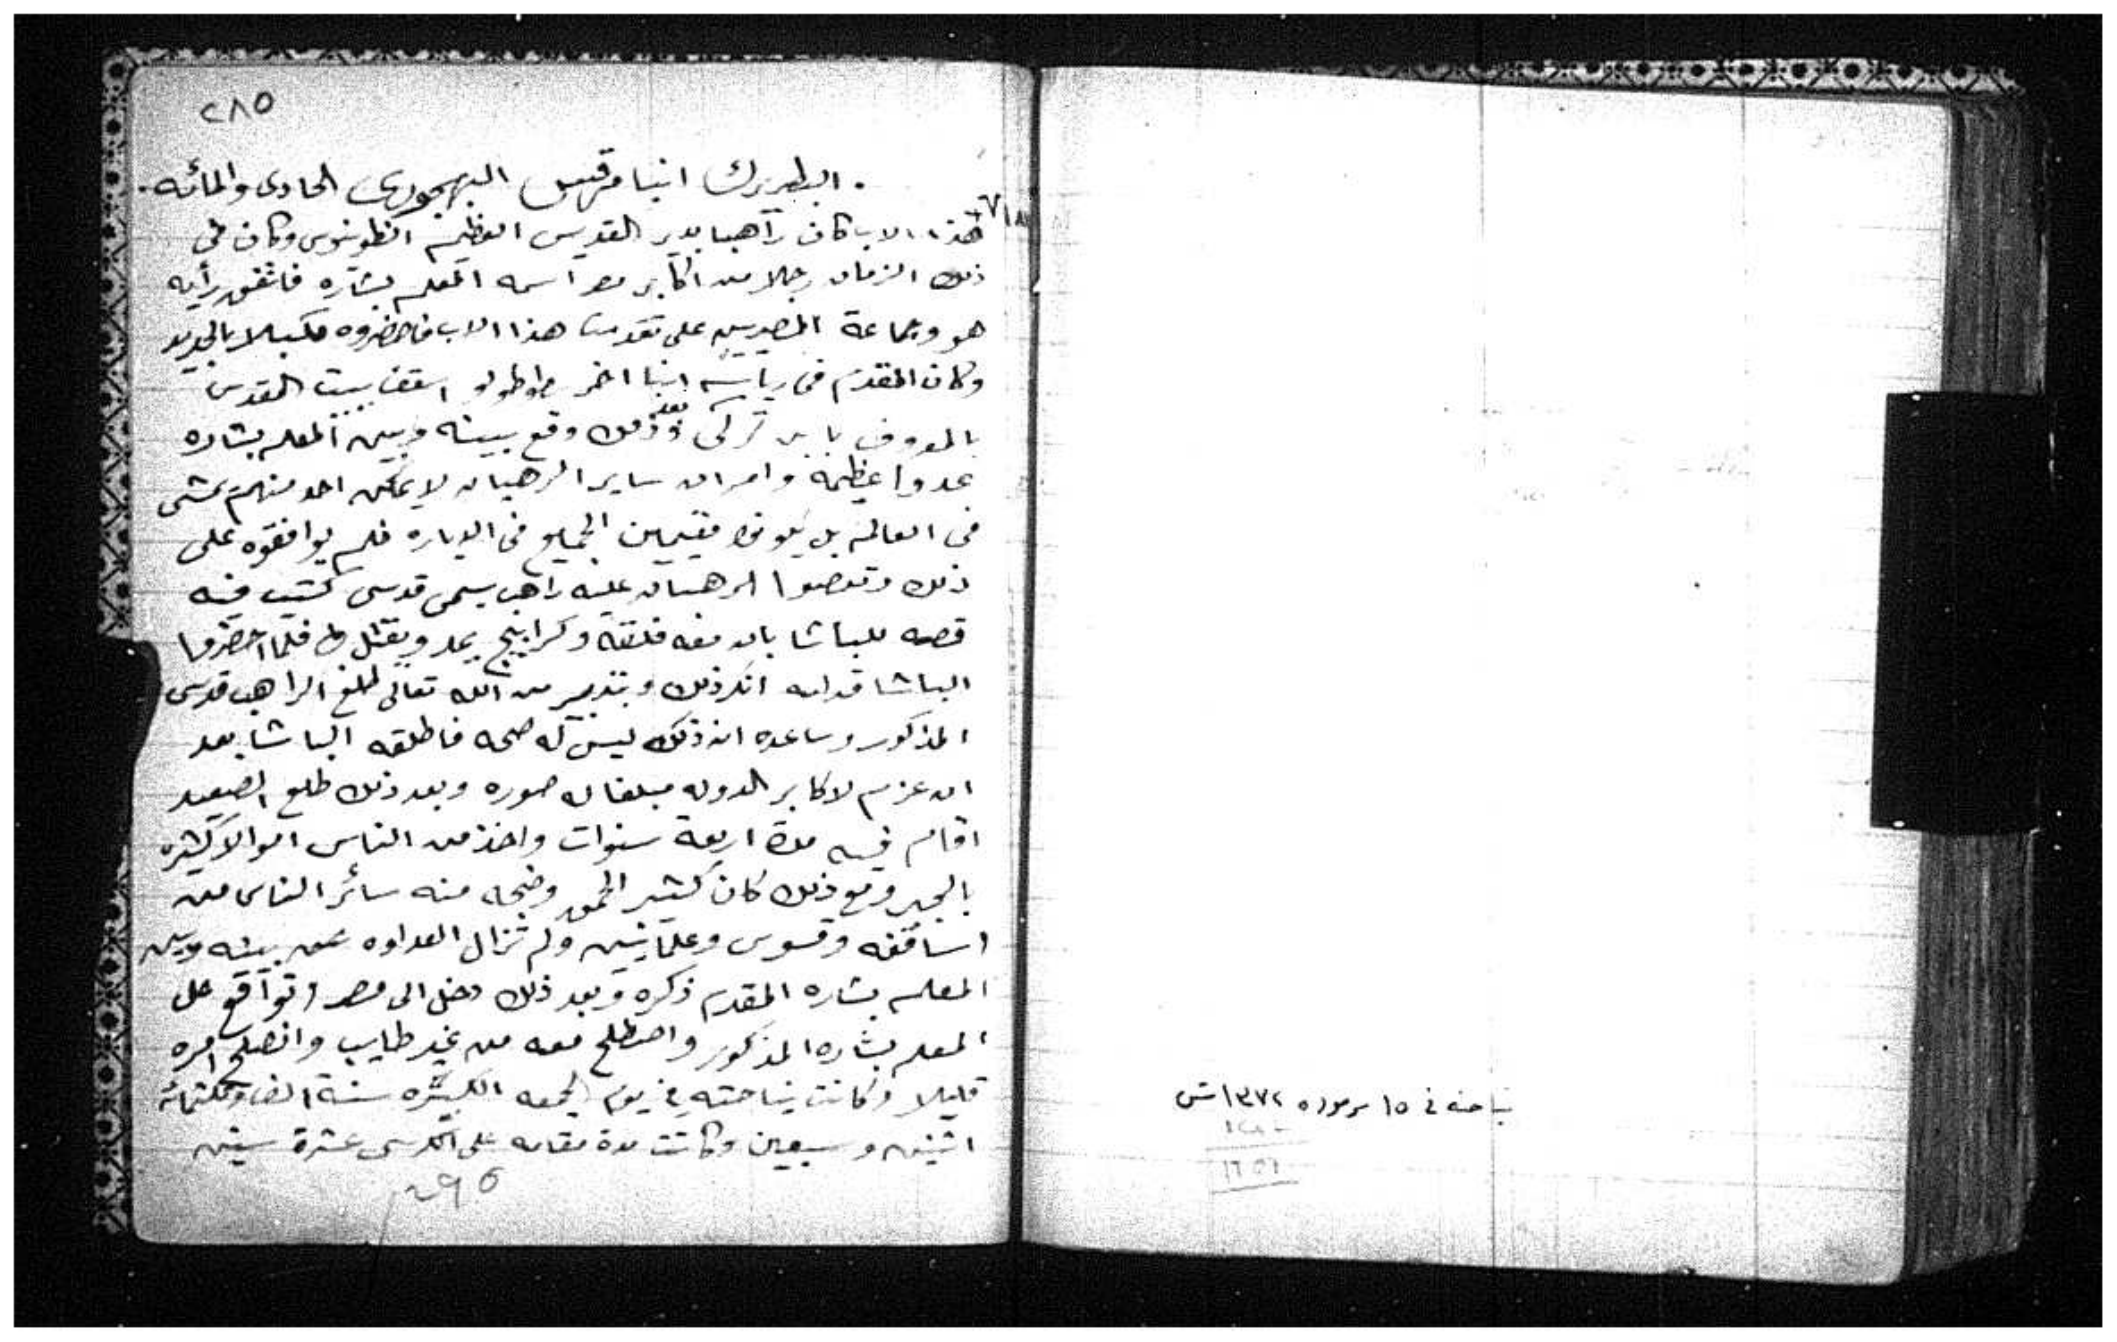 ٢٨٥
. البطريرك انبا مرقس البهجورى الحادى والمائه .
هذا الاب كان راهبا بدير القديس العظيم انطونيوس وكان فى
ذلك الزمان رجلا من اكابر مصر اسمه المعلم بشاره فاتفق رأيه
هو وجماعة المصريين على تقدمت هذا الاب فاحضروه مكبلا بالحديد
وكان المقدم فى رياسته انبا اخر اسقف بيت المقدس
بالمعروف تركى وبعد ذلك وقع بينه وبين المعلم بشاره
عدوا عظيمة وامر ان ساير الرهبان لا يمكن احد منهم يمشى
فى العالم بل يكونوا مقيمين الجميع فى الدياره فلم يوافقوه على
ذلك وتعصبوا الرهبان عليه راهب يسمى قدسى كتب فيه
قصه للباشا بان معه فلقة وكرابيج يمد ويقتل فلما احضرها
الباشا قدامه انكر ذلك وبتدبير من الله تعالى الراهب قدسى
المذكور وساعده ان ذلك ليس له صحه فاطلقه الباشا بعد
ان غرم لاكابر الدوله مبلغا له صوره وبعد ذلك طلع الصعيد
اقام فيه مدة اربعة سنوات واخذ من الناس اموالا كثيره
بالجبر ومع ذلك كان كثير الحمق وضجه منه سائر الناس من
اساقفه وقسوس وعلمانيين ولم تزال العداوه بينه وبين
المعلم بشاره المقدم ذكره وبعد ذلك دخل الى مصر وتواقع على
المعلم بشاره المذكور واصطلح معه من غير طايب وانصلح امره
قليلا وكانت نياحته فى يوم الجمعه الكبيره سنة الف وثلثمائه
اثنين وسبعين وكانت مدة مقامه على الكرسى عشرة سنين
٢٩٥
نياحته فى ١٥ برموده ١٣٧٢ ش